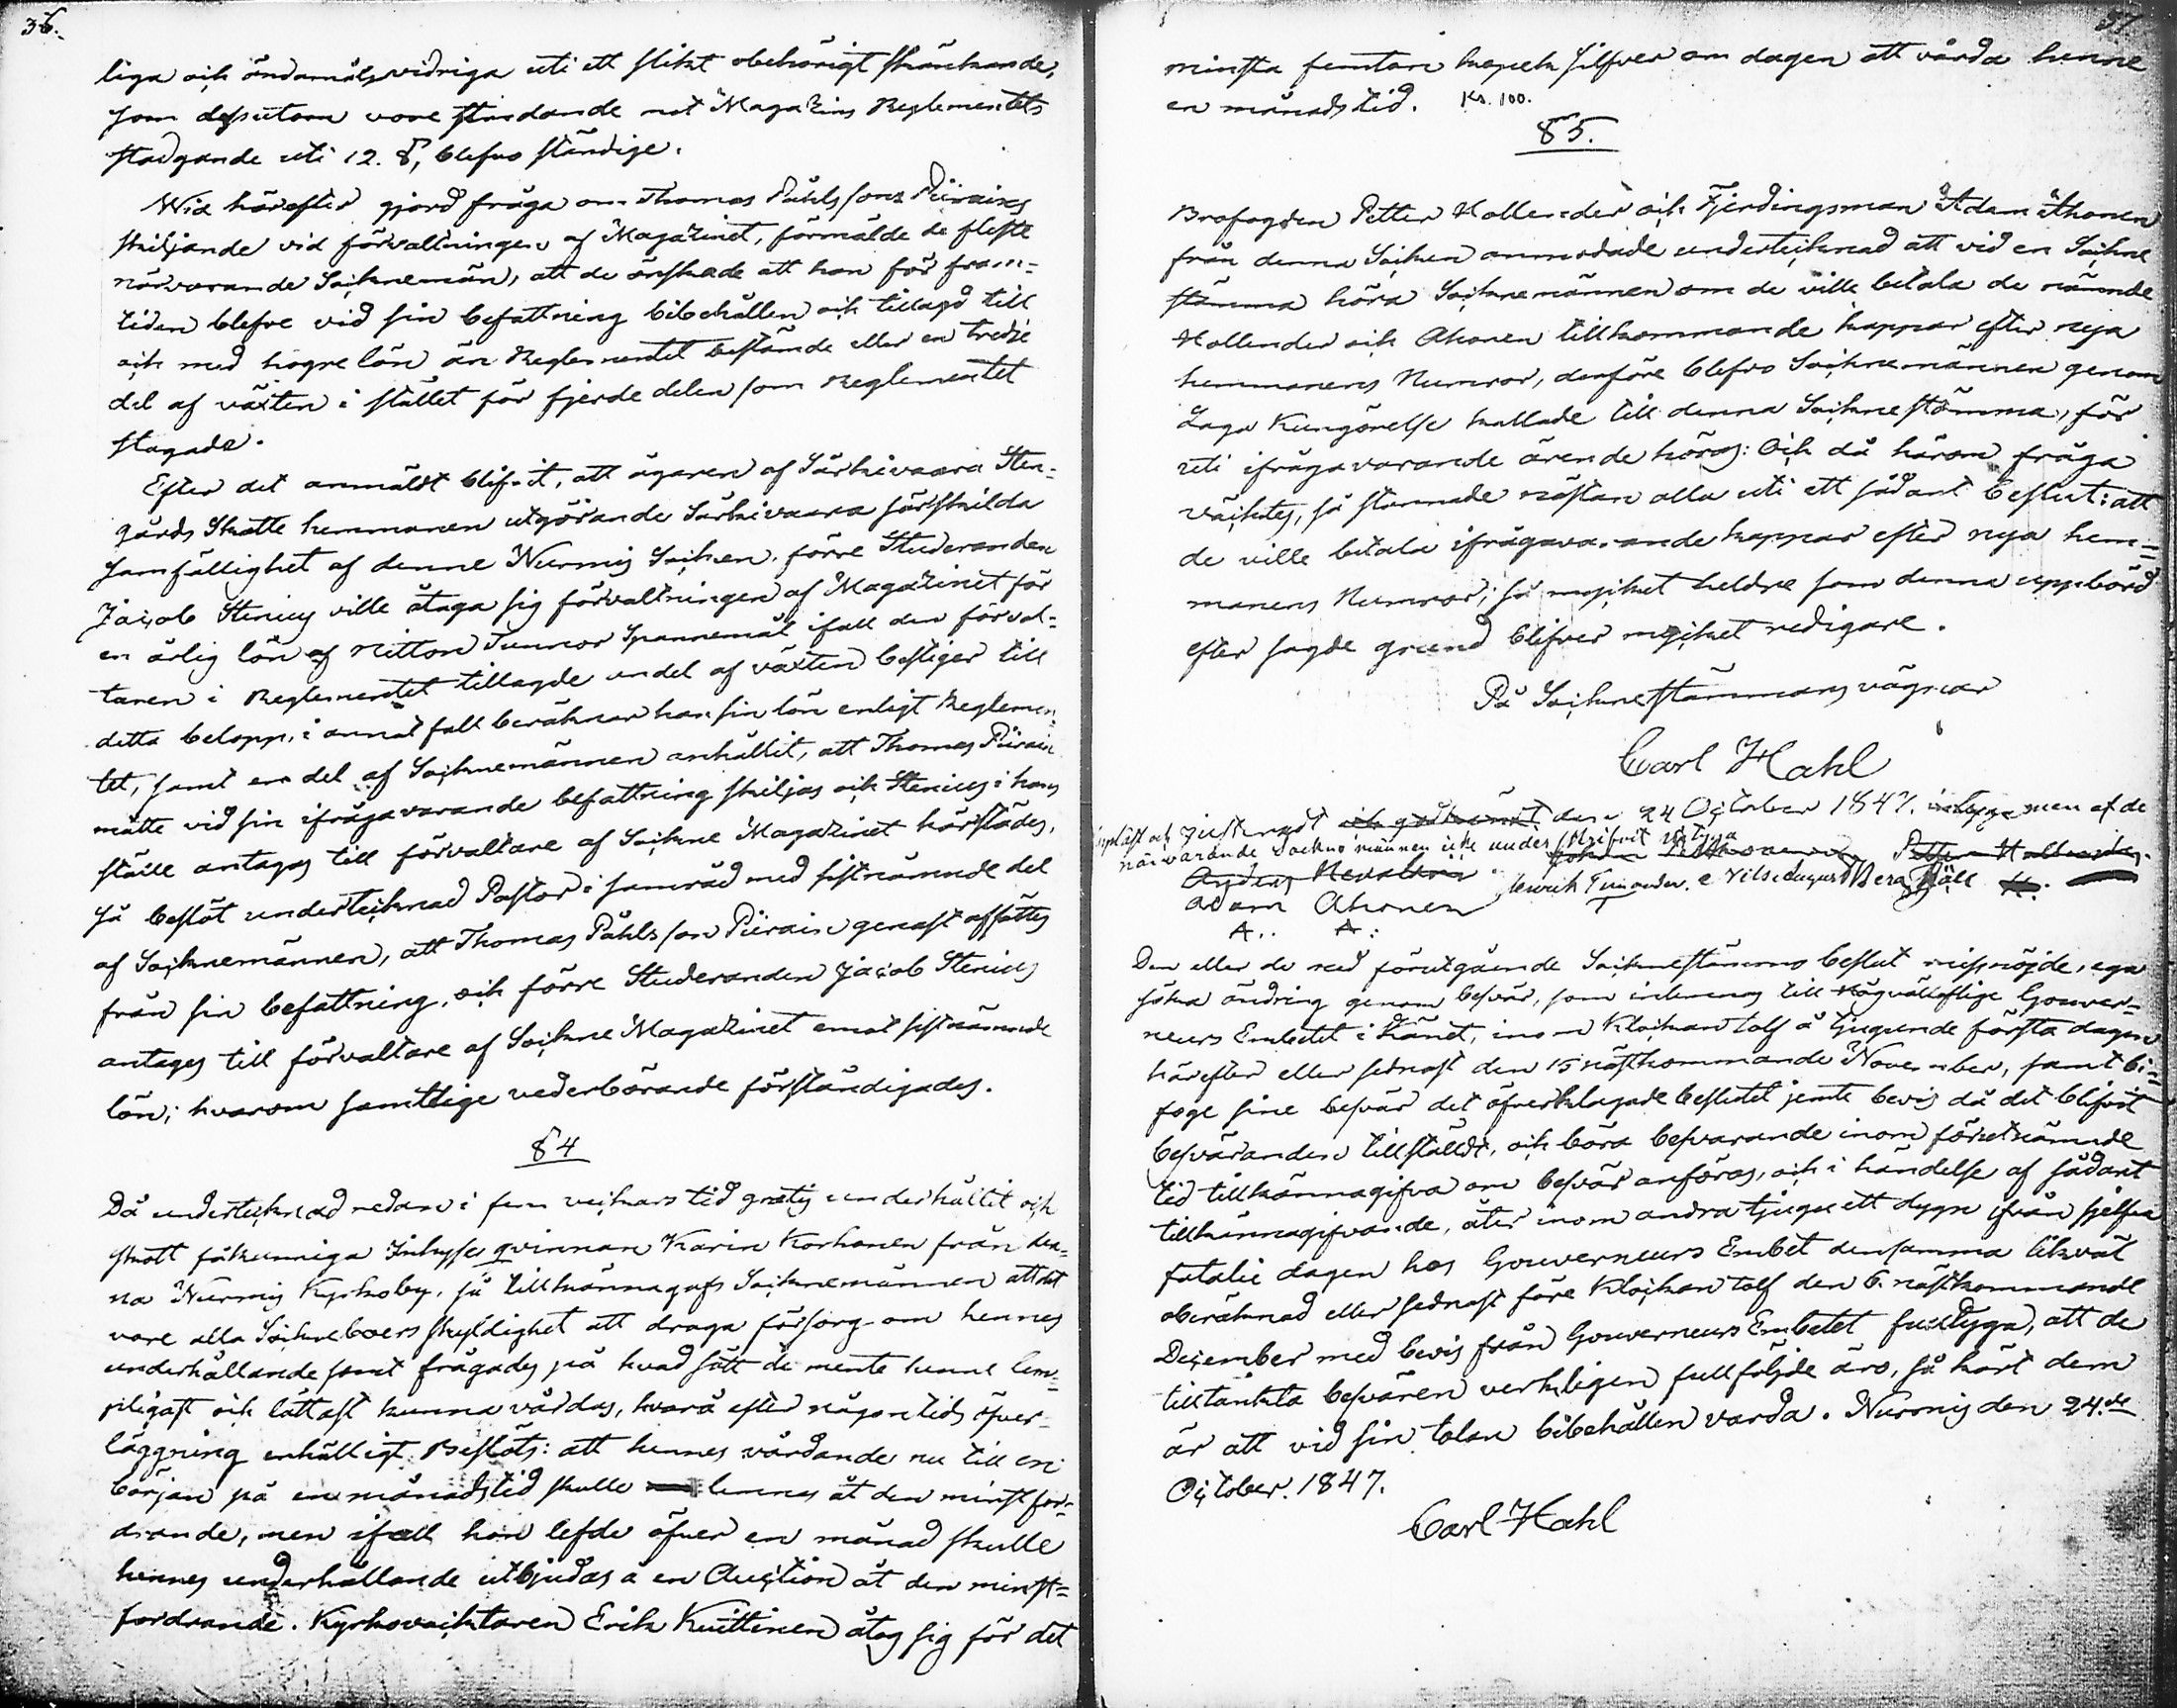 36.
liga och ändamålsvidriga uti ett slikt obehörigt skänkande,
som dessutom vore stridande mot Magazins Reglementets
stadgande uti 12. §, blefvo ständige.
Wid härefter gjord fråga om Thomas Påhlssons Piirains
skiljande vid förvaltningen af Magazinet, förmälde de fleste
närvarande Socknemän, att de önskade att han för fram=
tiden blefve vid sin befattning bibehållen och tillagd till
och med högre lön än Reglementet bestämde eller en tredje
del af växten i stället för fjerde delen som Reglementet
stagade.
Efter det anmäldt blifvit, att ägaren af Särkivaara Sten=
gårds Skatte hemmanen utgörande Särkivaara särskilda
samfällighet af denne Nurmis Socken, förre Studeranden
Jacob Stenius ville åtaga sig förvaltningen af Magazinet för
en årlig lön af nitton Tunnor Spannemål ifall den förval=
taren i Reglementet tillagde andel af växten bestiger till
detta belopp, i annat fall beräknar han sin lön enligt Reglemen=
tet, samt en del af Socknemännen anhållit, att Thomas Pirain
måtte vid sin ifrågavarande befattning skiljas och Stenius i hans
ställe antagas till förvaltare af Sockne Magazinet härstädes,
så beslöt undertecknad Pastor i samråd med sistnämnde del
af Socknemännen, att Thomas Påhlsson Piirain genast afsättes
från sin befattning, och förre Studeranden Jacob Stenius
antages till förvaltare af Sockne Magazinet emot sistnämnde
lön; hvarom samtlige vederbörande förständigades.
§ 4
Då undertecknad redan i fem veckors tid gratis underhållit och
skött fåkunniga Inhyses qvinnan Karin Korhonen från den=
na Nurmis Kyrkoby, så tillkännagafs Sockneman̄en att det
vore alla Sockneboers skyldighet att draga försorg om hennes
underhållande samt frågades på hvad sätt de mente henne läm=
pligast och lättast kunna vårdas, hvarå efter någon tids öfver=
läggning enhälligt Beslöts: att hennes vårdande nu till en
början på en månadstid skulle lemnas åt den minst for=
drande, men ifall hon lefde öfver en månad skulle
hennes underhållande utbjudas å en Auction åt den minst=
fordrande. Kyrkovacktaren Erik Kuittinen åtog sig för det
37
minsta femton kopek silfver om dagen att vårda henne
en månads tid. Ks. 100.
§ 5.
Brofogden Petter Hollender och Fjerdingsman Adam Ahonen
från denna Socken anmodade undertecknad att vid en Sockne
stämma höra Sockne männen om de ville betala de nämnde
Hollender och Ahonen tillkommande kappar efter nya
hemmanens Numror, derföre blefvo Sockne männen genom
Laga Kungörelse kallade till denna Sockne stämma, för
uti ifrågavarande ärende höras: Och då härom fråga
väcktes, så stannade nästan alla uti ett sådant beslut: att
de ville betala ifrågavarande kappar efter nya hem=
manens Numror; så mycket heldre som denna uppbörd
efter sagde grund blifver mycket redigare.
På Sockne stämmans vägnar
Carl Hahl
Uppläst och justeradt och godkändt den 24 October 1847. men af de
närvarande Sockne männen icke under skrifvit
Petter Hollender
Adam Ahonen Henrik
A.. A:
Den eller de med förutgående Socknestämmo beslut missnöjde, ega
söka ändring genom besvär, som inlemnas till Högvälloflige Gouver=
neurs Embetet i Länet, inom Klockan tolf å tjugunde första dagen
härefter eller sednast den 15 nästkommande November, samt bi=
foge sine besvär det öfverklagade beslutet jemte bevis då det blifvit
besväranden tillställdt, och böra besvarande inom förutnämnde
tid tillkännagifva om besvär anföras, och i händelse af sådant
tillkännagifvande, åter inom andra tjugu ett dygn ifrån sjelfva
fatalie dagen hos Gouverneurs Embet densamma likväl
oberäknad eller sednast före Klockan tolf den 6. nästkommande
December med bevis från Gouverneurs Embetet fulltyga, att de
tilltänkta besvären verkligen fullföljde äro, så kärt dem
är att vid sin talan bibehållen varda. Nurmis den 24.de
October. 1847.
Carl Hahl